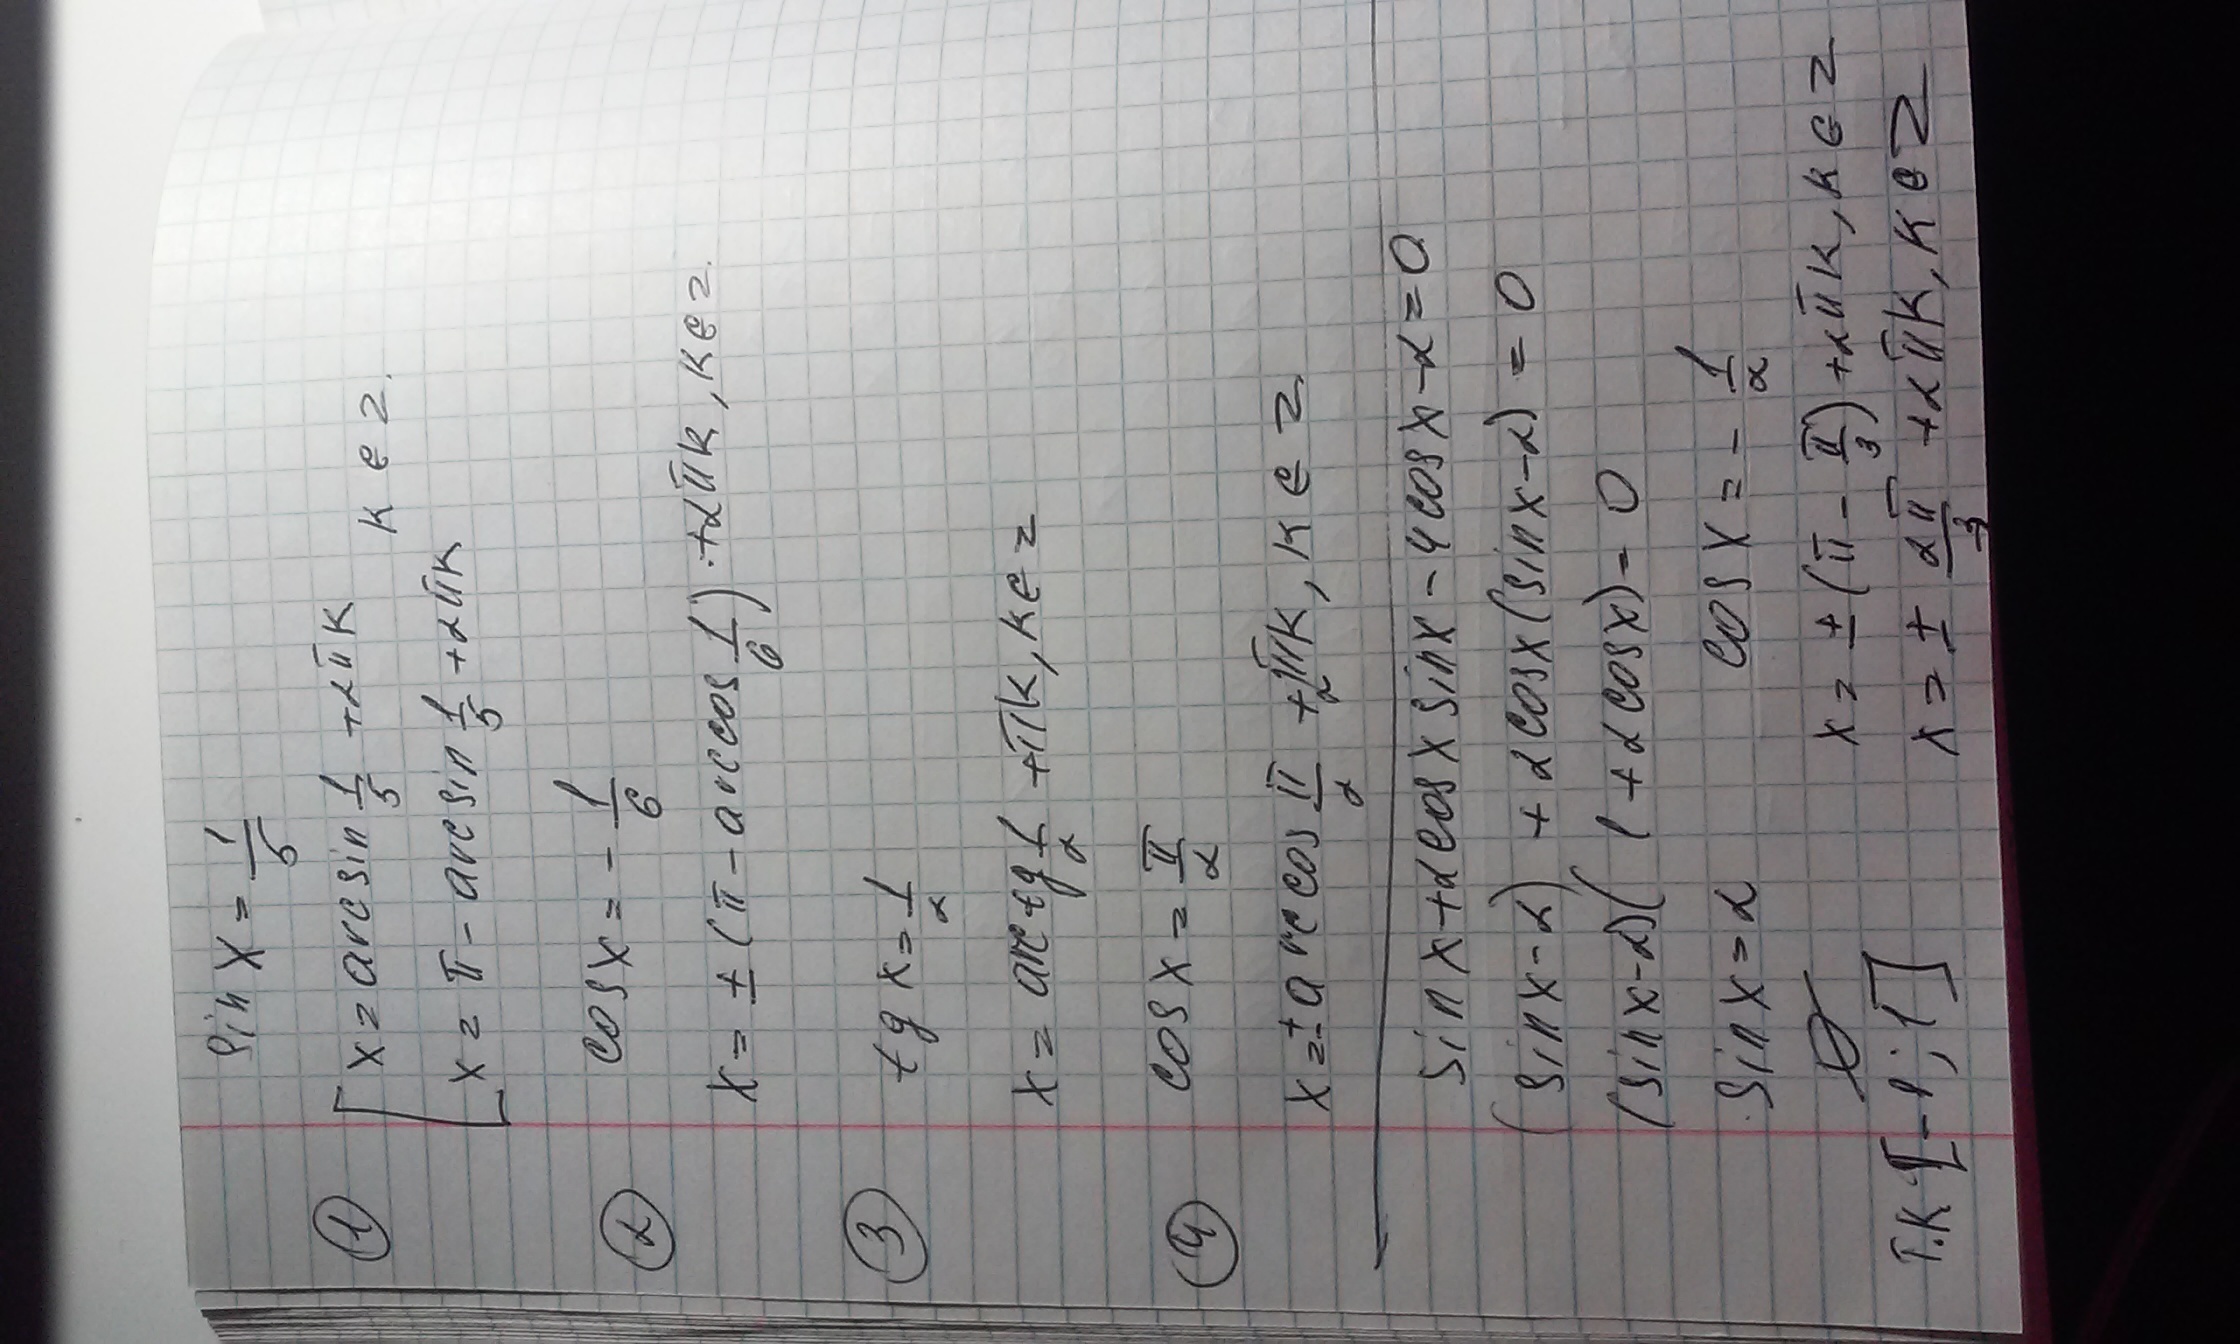 ① sin x = 1/5
[ x = arcsin 1/5 + 2πk
k ∈ z.
x = π - arcsin 1/5 + 2πk
② cos x = - 1/6
x = ± (π - arccos 1/6) + 2πk, k ∈ z.
③ tg x = 1/2
x = arctg 1/2 + πk, k ∈ z
④ cos x = π/2
x = ± arccos π/2 + 2πk, k ∈ z
sin x + 2cos x sin x - 4cos x - 2 = 0
(sin x - 2) + 2cos x (sin x - 2) = 0
(sin x - 2)(1 + 2cos x) = 0
sin x = 2 cos x = - 1/2
∅ x = ± (π - π/3) + 2πk, k ∈ z
т.к [-1; 1] x = ± 2π/3 + 2πk, k ∈ z